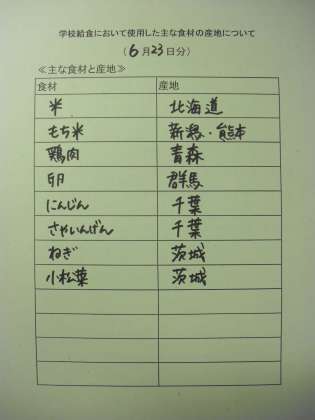 学校給食において使用した主な食材の産地について
(6月23日分)
≪主な食材と産地≫
食材 産地
米 北海道
もち米 新潟・熊本
鶏肉 青森
卵 群馬
にんじん 千葉
さやいんげん 千葉
ねぎ 茨城
小松菜 茨城